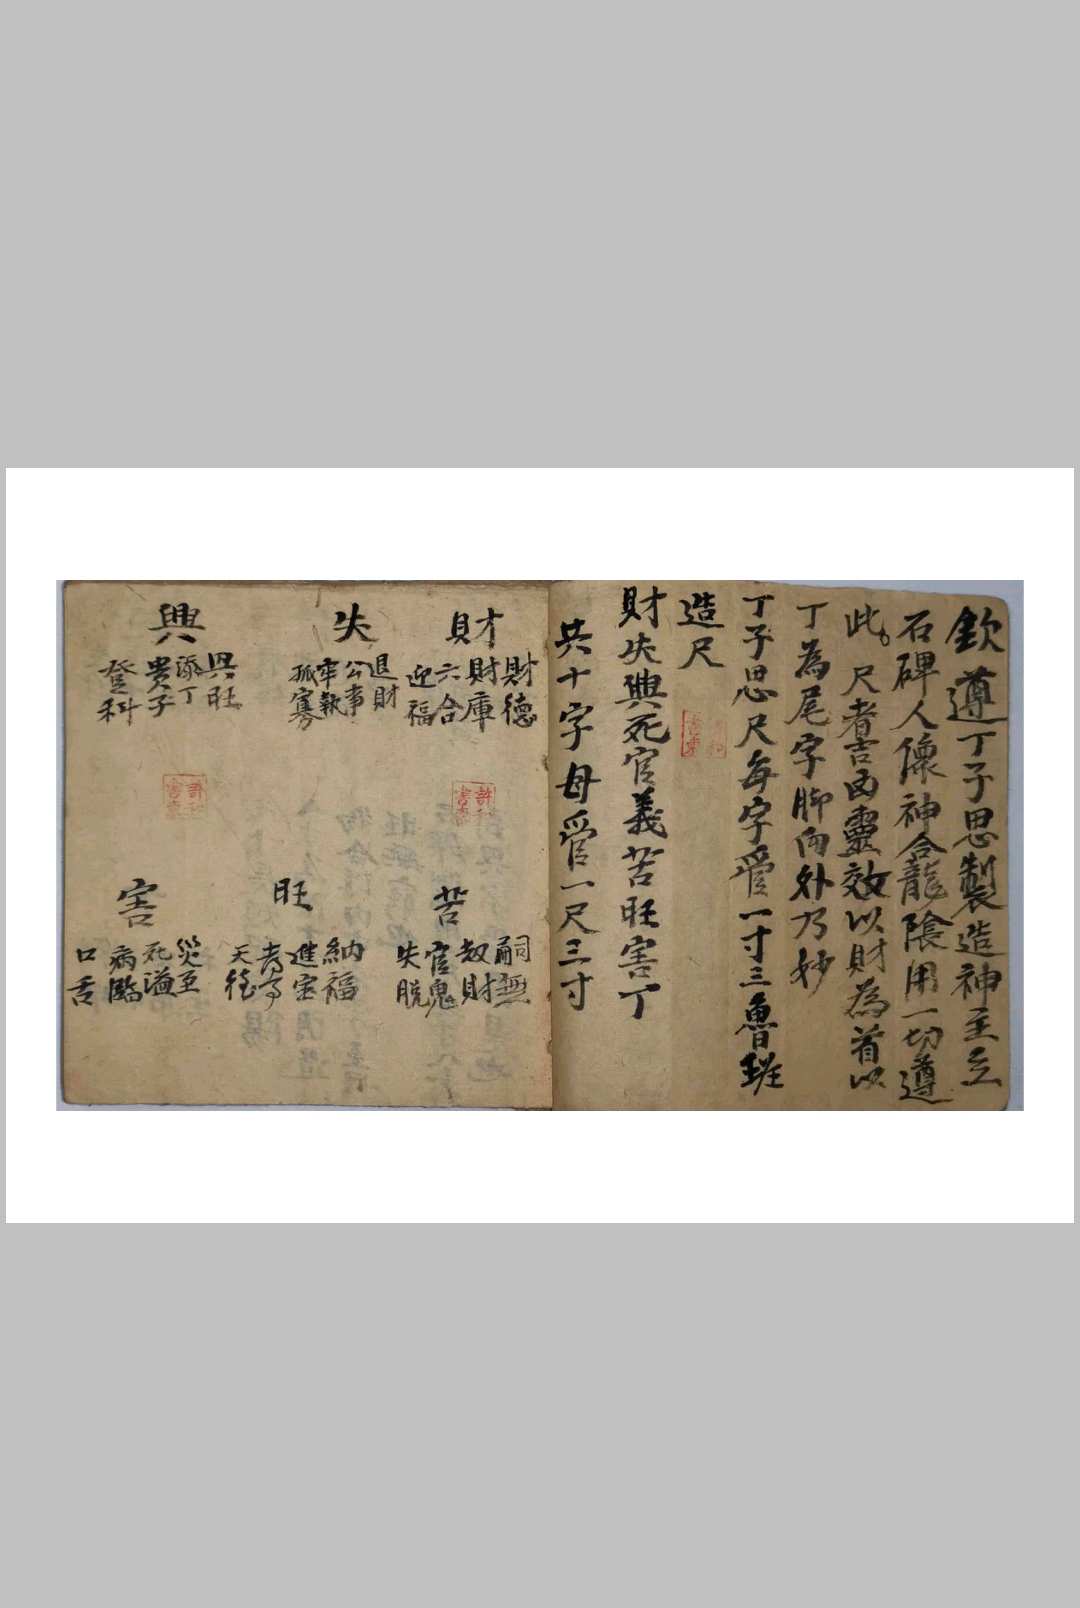 欽遵丁子思製造神主立
石碑人像神合龍陰用一切遵
此。尺者吉凶靈效以財為首以
丁為尾字脚向外乃妙
丁子思尺每字管一寸三魯班
造尺
財失興死官義苦旺害丁
共十字母管一尺三寸
財
財德
財庫
六合
迎福
失
退財
公事
牢執
孤寡
興
興旺
添丁
貴子
登科
苦
嗣無
刼財
官鬼
失脱
旺
納福
進宝
天德
害
災至
死
病臨
口舌
許和
書